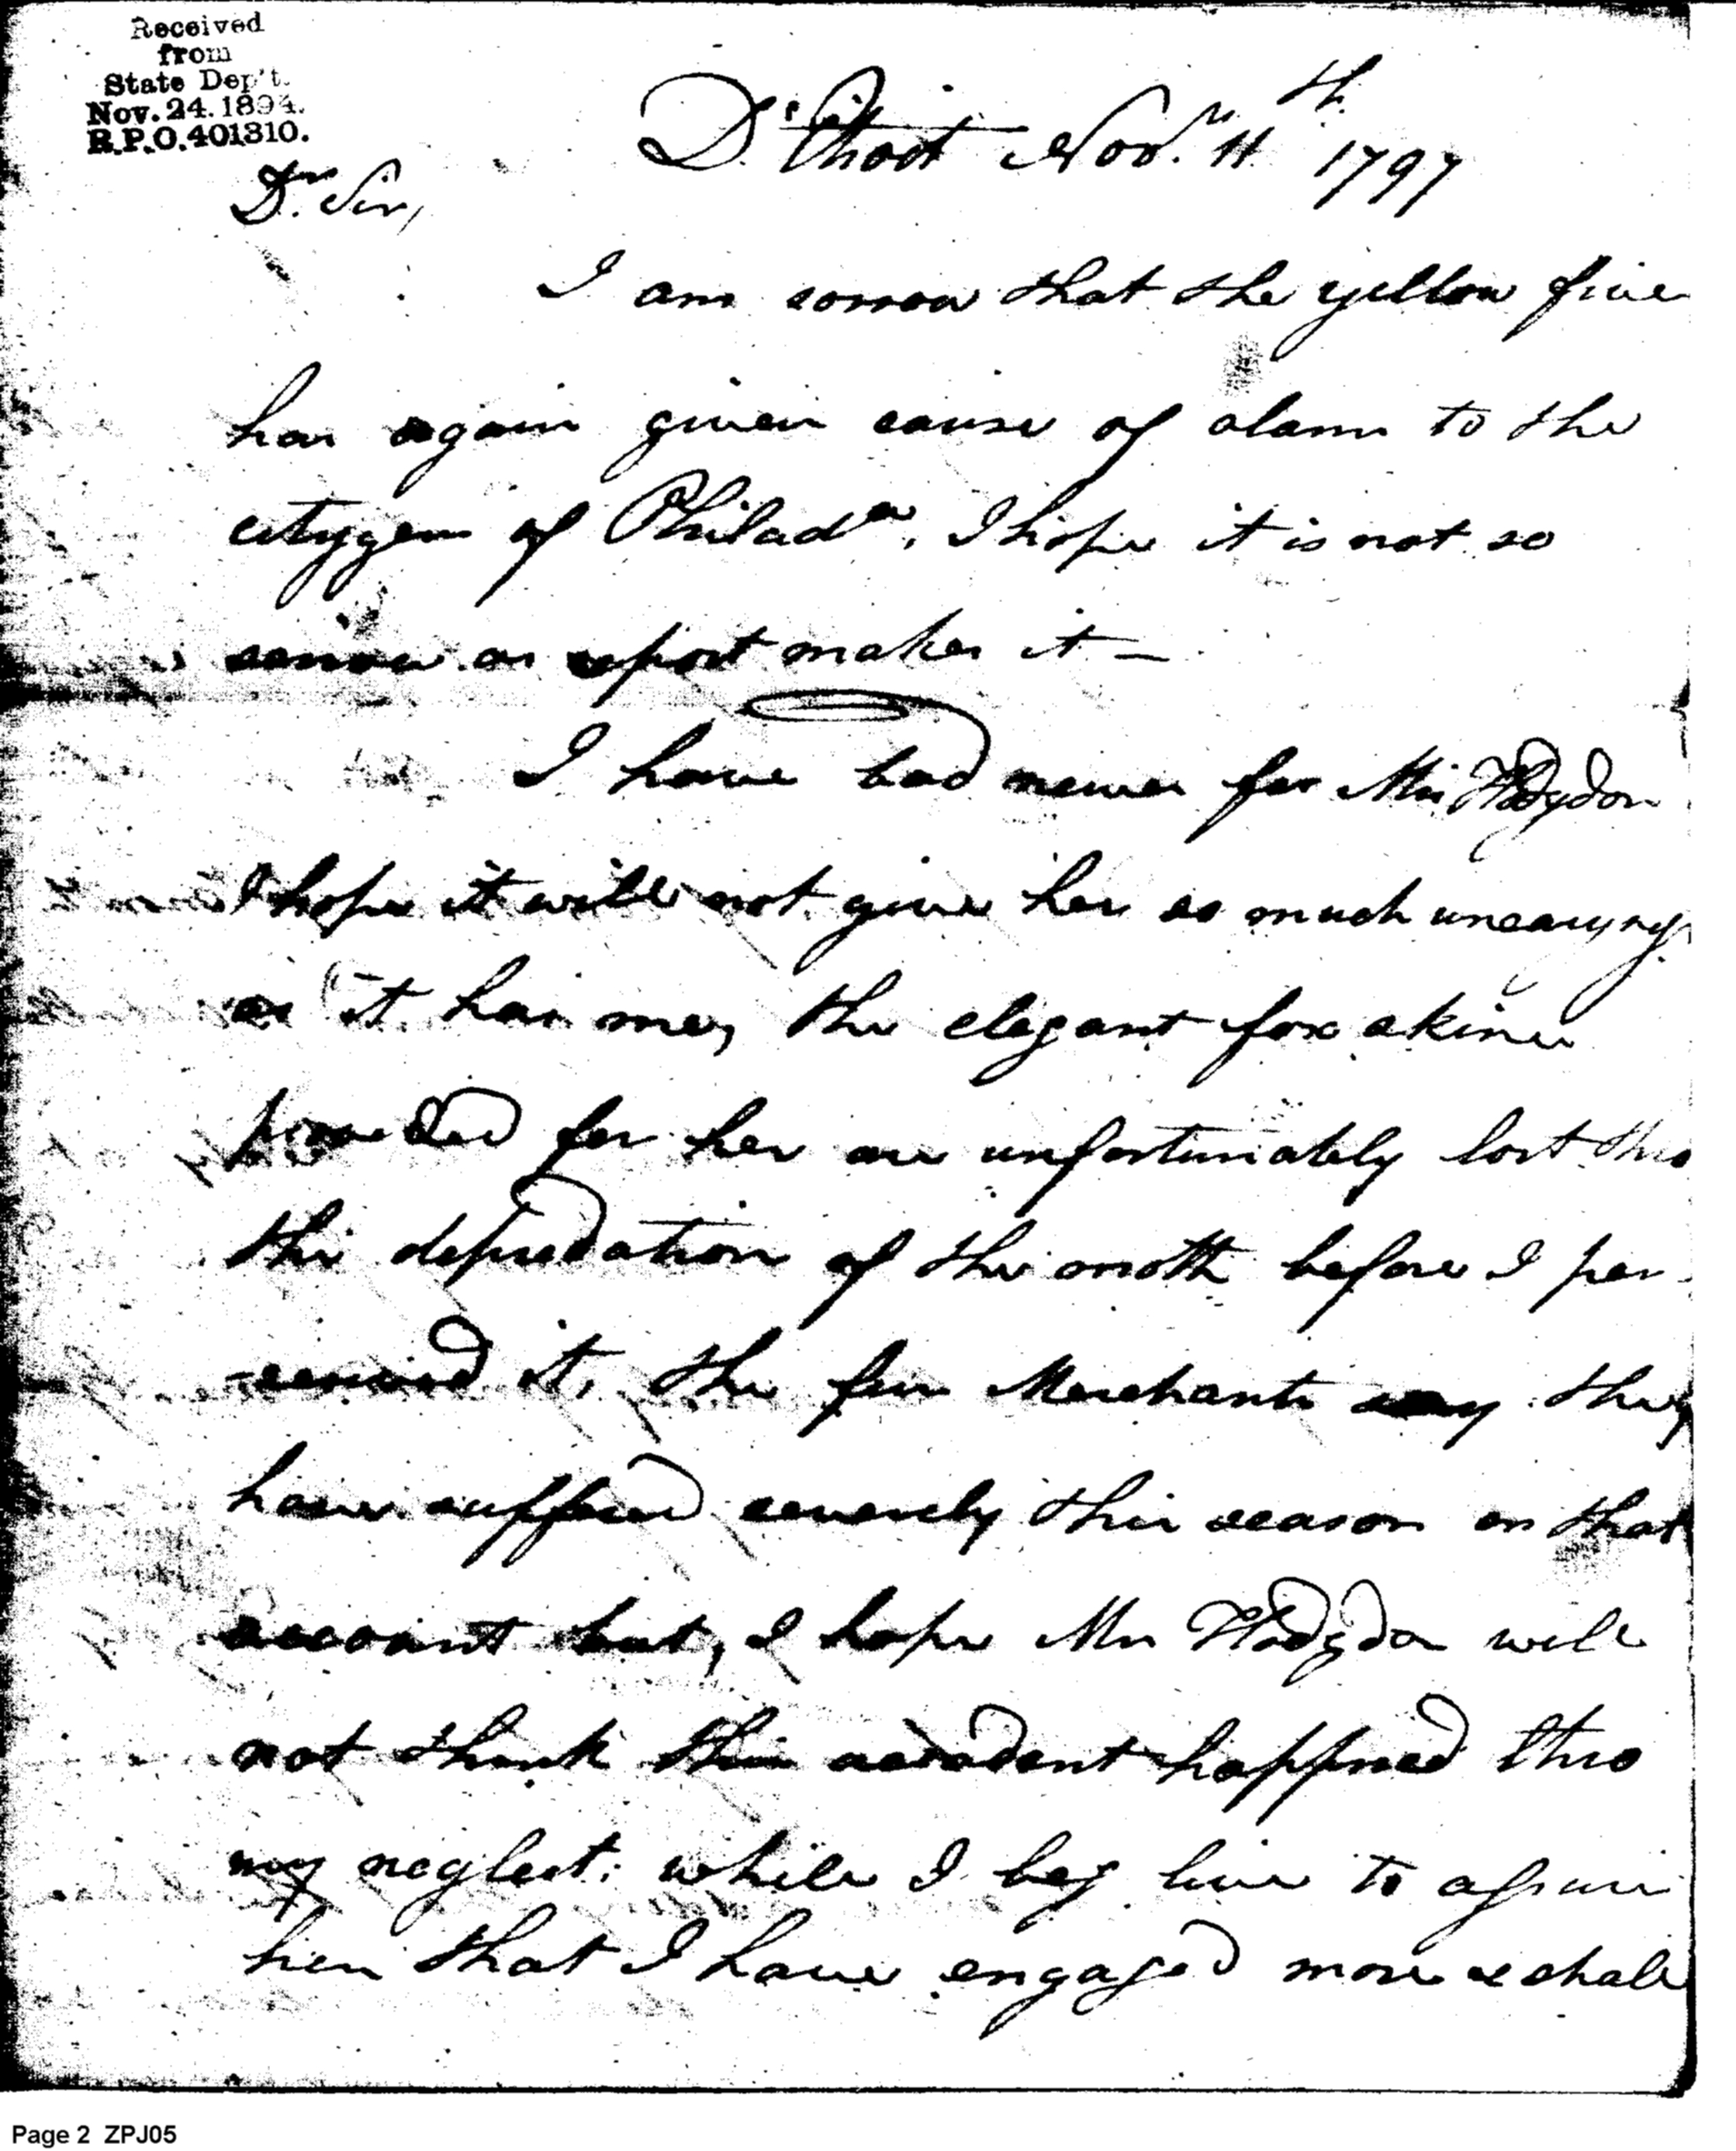 Received
from
State Dep't.
Nov. 24. 1894.
R.P.O. 401310.
D'Troit Novr. 11th 1797
Dr. Sir,
I am sorrow that the yellow fiver
has again given cause of alarm to the
cityzens of Philada, I hope it is not so
serious as report makes it —
I have bad newes for Mrs Hodgdon
I hope it will not give her so much uneasyness
as it has me, the elegant fox skines
provided for her are unfortunately lost thro
the depredation of the moth before I per-
-ceived it, the fur Merchants say they
have suffered severely this season on that
account but, I hope Mrs Hodgdon will
not think this accedent happned thro
my neglect: while I beg live to assure
her that I have engaged more & shall
Page 2 ZPJ05